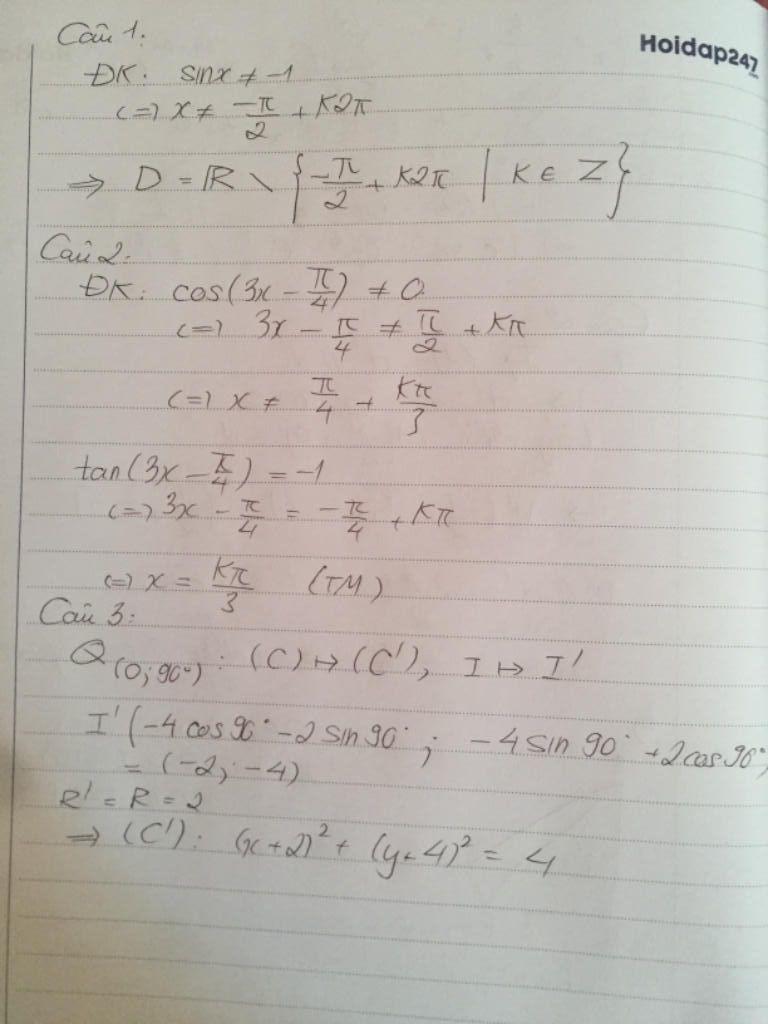 Câu 1:
Hoidap247
ĐK: sinx ≠ -1
<=> x ≠ -π/2 + K2π
=> D = R \ { -π/2 + K2π | K ∈ Z }
Câu 2:
ĐK: cos(3x - π/4) ≠ 0
<=> 3x - π/4 ≠ π/2 + Kπ
<=> x ≠ π/4 + Kπ/3
tan(3x - π/4) = -1
<=> 3x - π/4 = -π/4 + Kπ
<=> x = Kπ/3 (TM)
Câu 3:
Q(O;90°): (C) ↦ (C'), I ↦ I'
I' (-4cos90° - 2sin90° ; -4sin90° + 2cos90°)
= (-2; -4)
R' = R = 2
=> (C'): (x+2)² + (y+4)² = 4